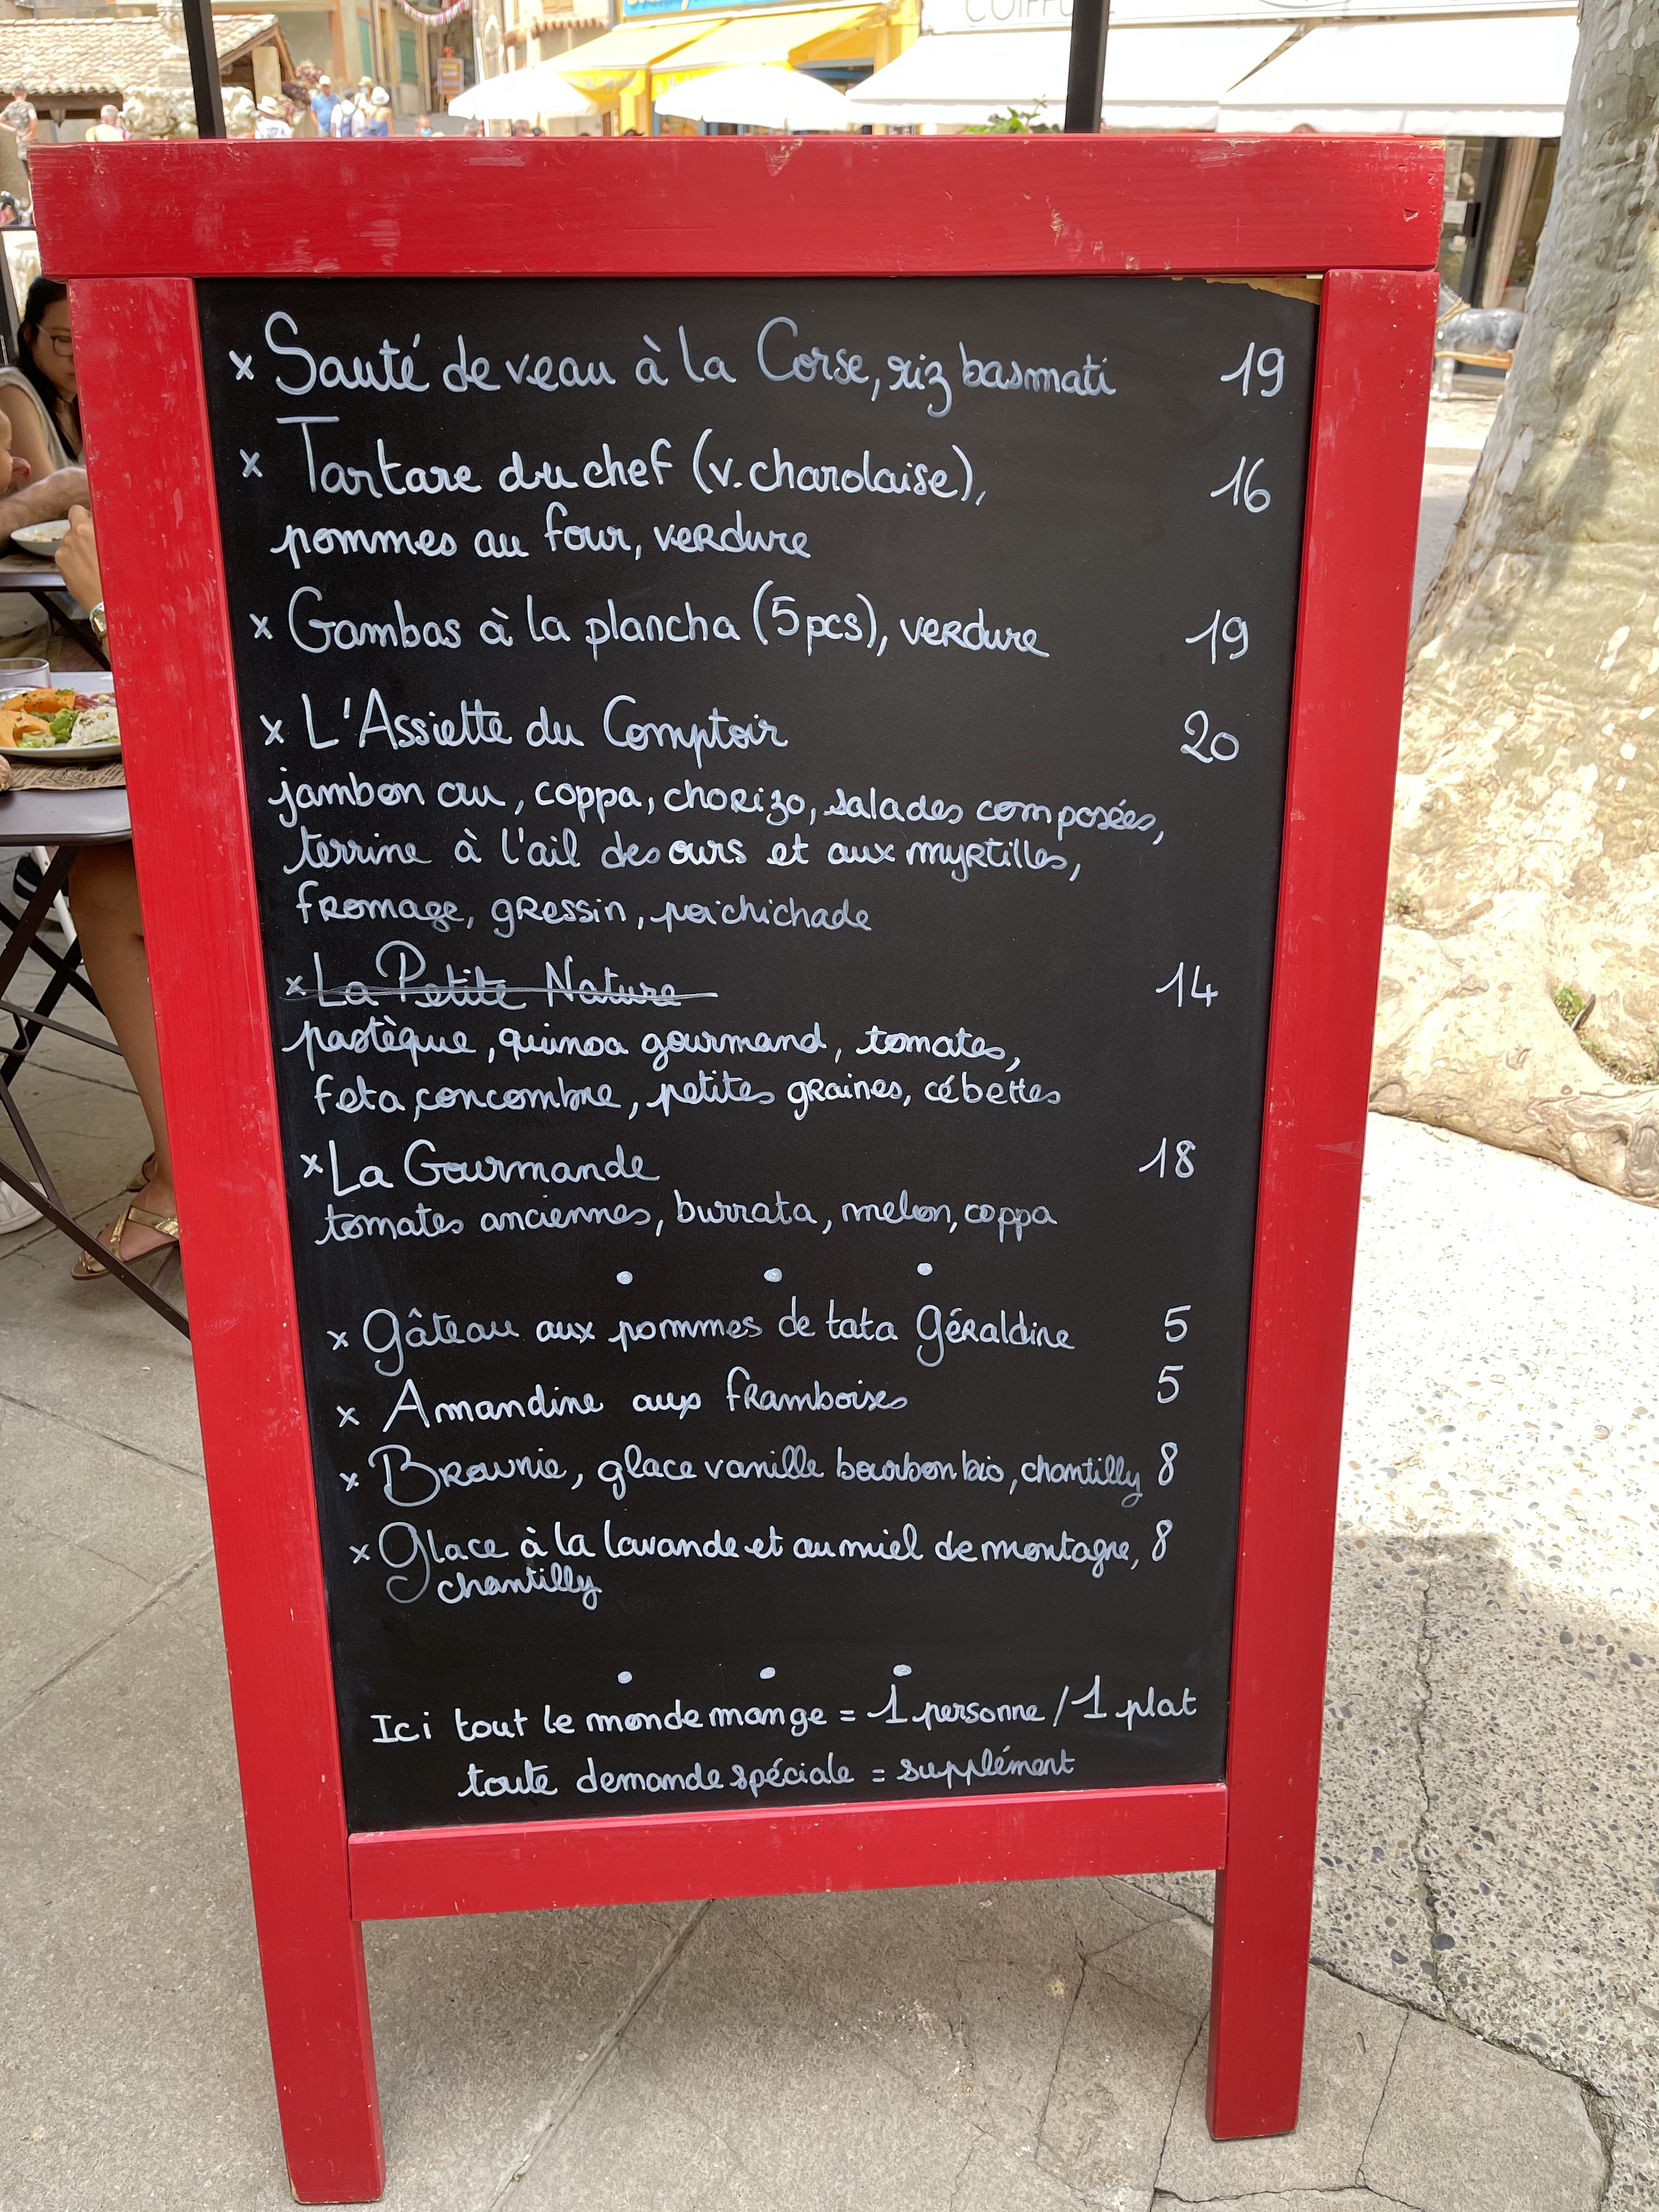 COIFFU
x Sauté de veau à la Corse, riz basmati 19
x Tartare du chef (v. charolaise), 16
pommes au four, verdure
x Gambas à la plancha (5pcs), verdure 19
x L'Assiette du Comptoir 20
jambon cru, coppa, chorizo, salades composées,
terrine à l'ail des ours et aux myrtilles,
fromage, gressin, poichichade
x La Petite Nature 14
pastèque, quinoa gourmand, tomates,
feta, concombre, petites graines, cébettes
x La Gourmande 18
tomates anciennes, burrata, melon, coppa
x Gâteau aux pommes de tata Géraldine 5
x Amandine aux framboises 5
x Brownie, glace vanille bourbon bio, chantilly 8
x Glace à la lavande et au miel de montagne, 8
chantilly
Ici tout le monde mange = 1 personne / 1 plat
toute demande spéciale = supplément